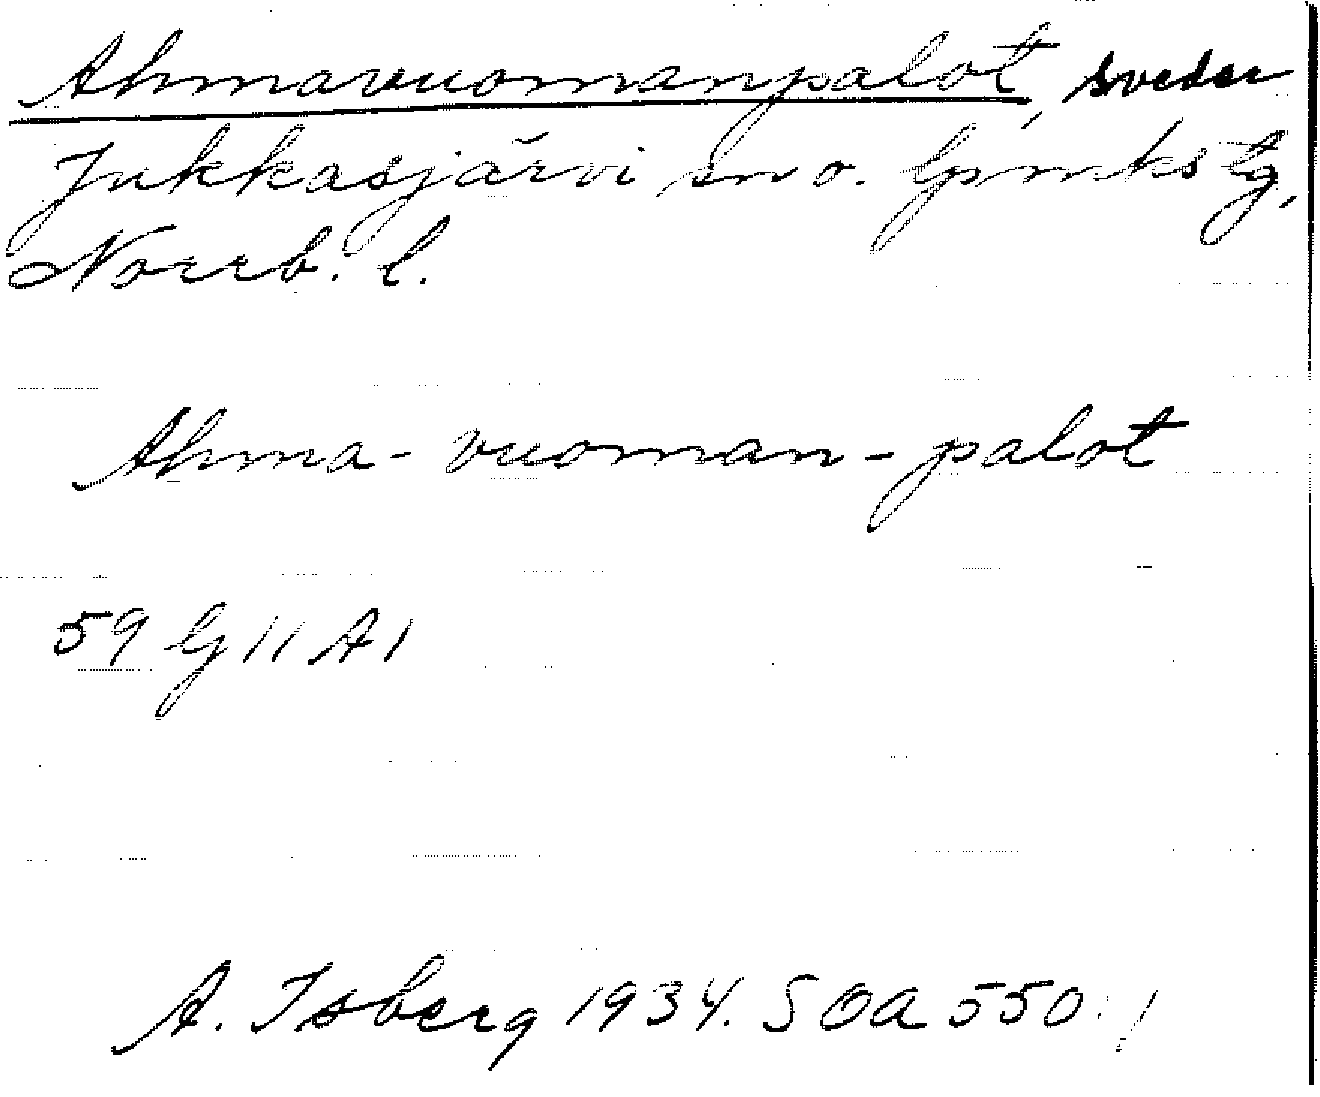 Ahmavuomanpalot, svedar
Jukkasjärvi sn o. Gpmks lg,
Norrb. l.
Ahma-vuoman-palot
59 G 11 A 1
A. Isberg 1934. SOA 550:1